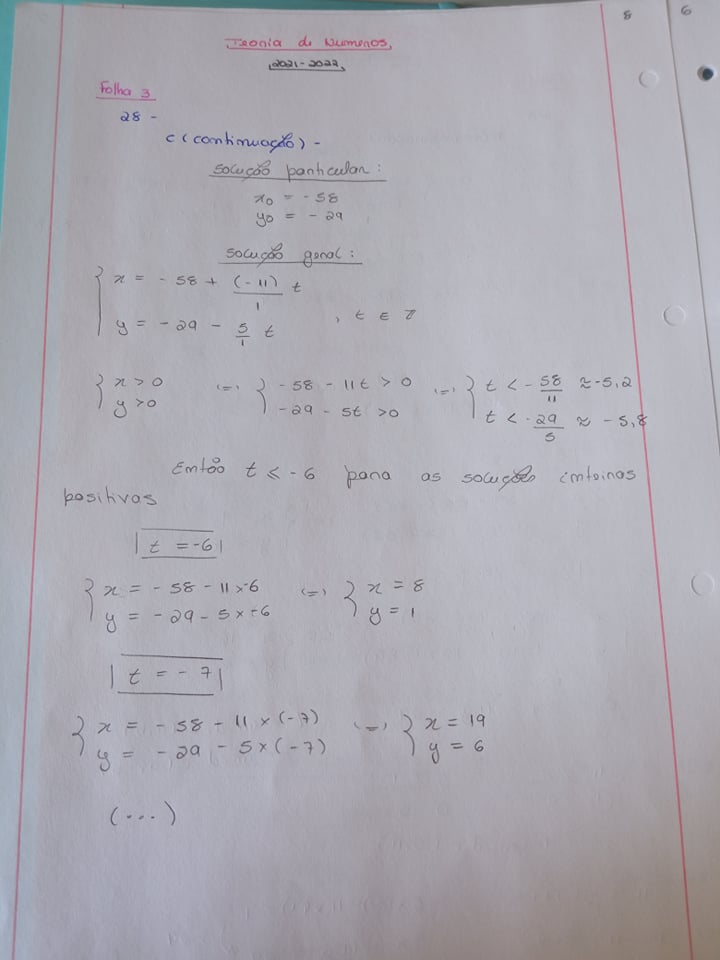 8 6
Teoria de Números,
2021-2022,
Folha 3
28 -
c (continuação) -
solução particular:
x₀ = - 58
y₀ = - 29
solução geral:
{ x = - 58 + (-11)/1 t
{ y = - 29 - 5/1 t , t ∈ ℤ
{ x > 0 (=) { - 58 - 11t > 0 (=) { t < - 58/11 ≈ -5,2
{ y > 0 { - 29 - 5t > 0 { t < - 29/5 ≈ - 5,8
Então t ≤ -6 para as soluções inteiras
positivas
| t = -6 |
{ x = - 58 - 11 × -6 (=) { x = 8
{ y = - 29 - 5 × -6 { y = 1
| t = - 7 |
{ x = - 58 - 11 × (-7) (=) { x = 19
{ y = - 29 - 5 × (-7) { y = 6
(...)